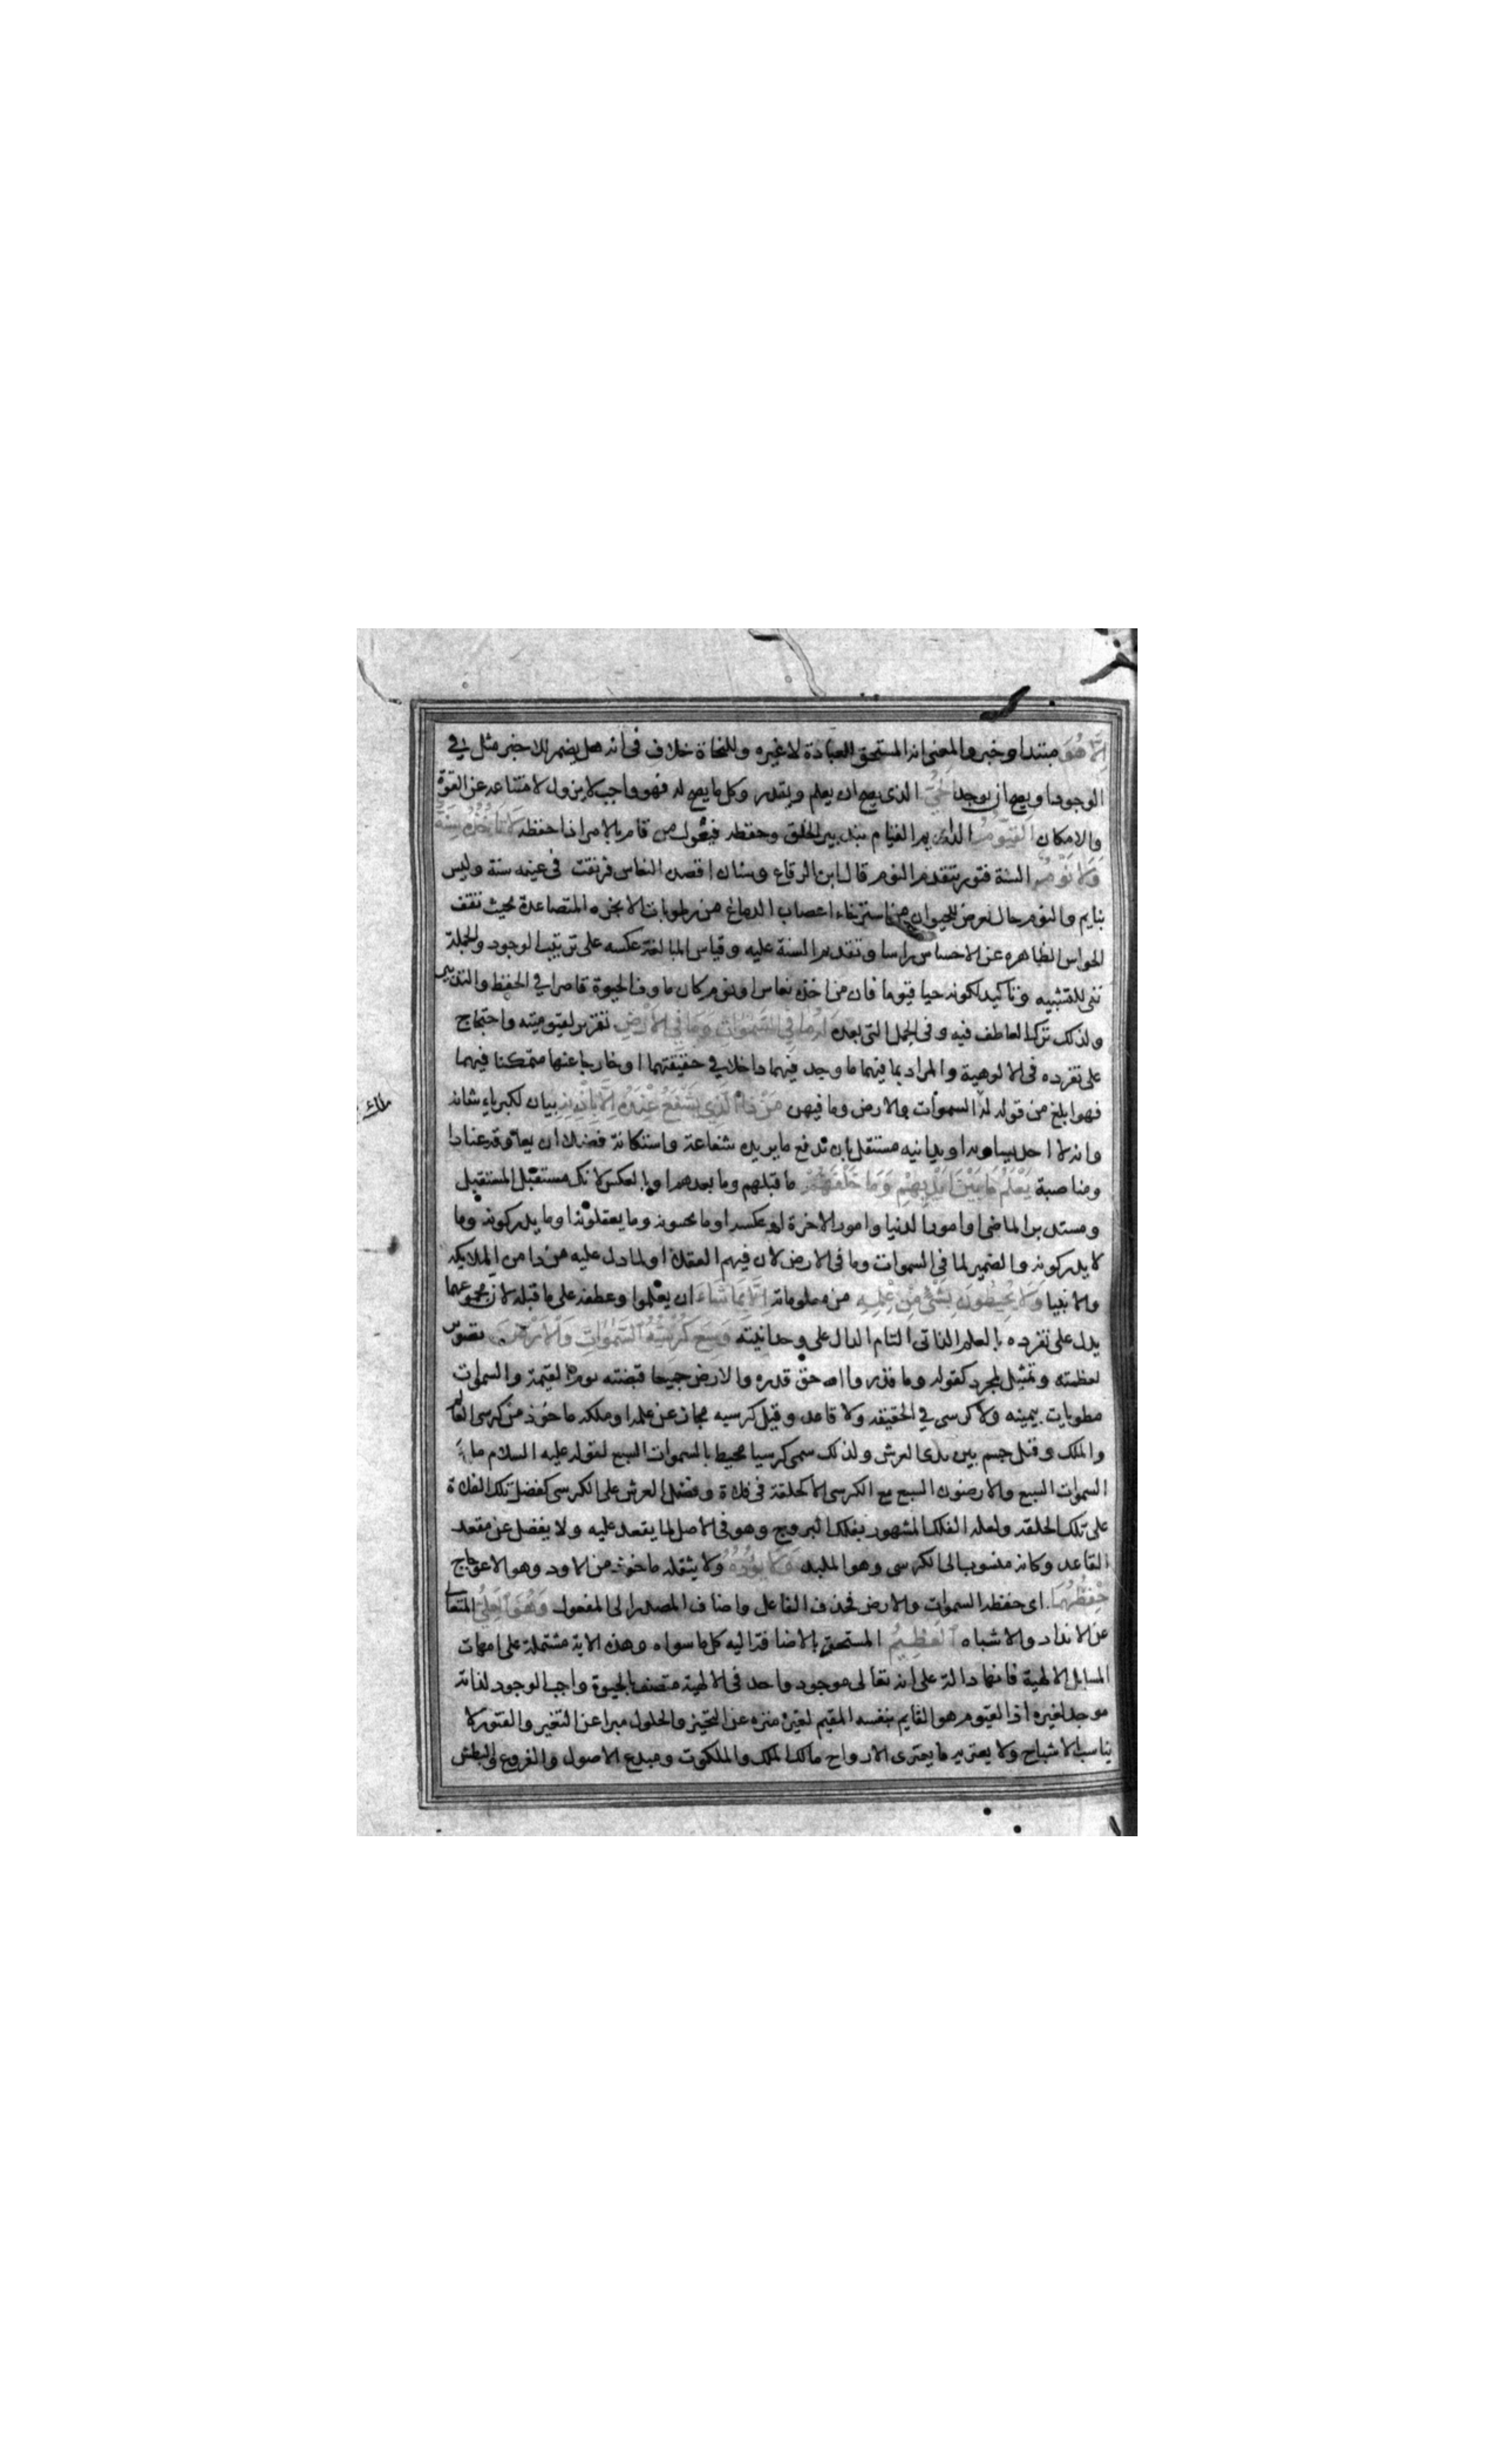 إِلَّا هُوَ مبتدا وخبر والمعنى انه المستحق للعبادة لا غيره وللنحاة خلاف فى انه هل يضمر للا خبر مثل في
الوجود او يصح ان يوجد الْحَيُّ الذى يصح ان يعلم ويقدر وكل ما يصح له فهو واجب لا يزول لامتناعه عن القوة
والامكان الْقَيُّومُ الدايم القيام بتدبير الخلق وحفظه فيعول من قام بالامر اذا حفظه لَا تَأْخُذُهُ سِنَةٌ
وَلَا نَوْمٌ السنة فتور يتقدم النوم قال ابن الرقاع وسنان اقصده النعاس فرنقت فى عينه سنة وليس
بنايم والنوم حال تعرض للحيوان من استرخاء اعصاب الدماغ من رطوبات الابخره المتصاعدة بحيث تقف
الحواس الظاهره عن الاحساس راسا وتقديم السنة عليه وقياس المبالغة عكسه على ترتيب الوجود والجملة
نفى للتشبيه وتاكيد لكونه حيا قيوما فان من اخذه نعاس او نوم كان ماوف الحيوة قاصرا في الحفظ والتدبير
ولذلك ترك العاطف فيه وفى الجمل التى بعده لَهُ مَا فِي السَّمٰوَاتِ وَمَا فِي الْأَرْضِ تقرير لقيوميته واحتجاج
على تفرده فى الالوهية والمراد بما فيهما ما وجد فيهما داخلا في حقيقتهما او خارجا عنها متمكنا فيهما
فهو ابلغ من قوله له السموات والارض وما فيهن مَنْ ذَا الَّذِي يَشْفَعُ عِنْدَهُ إِلَّا بِإِذْنِهِ بيان لكبرياء شانه
وانه لا احد يساويه او يدانيه مستقل بان تدفع ما يريده شفاعة واستكانة فضلا ان يعاوقه عنادا
ومناصبة يَعْلَمُ مَا بَيْنَ أَيْدِيهِمْ وَمَا خَلْفَهُمْ ما قبلهم وما بعدهم او بالعكس لانك مستقبل المستقبل
ومستدبر الماضى او امور الدنيا وامور الاخرة او عكسه او ما يحسونه وما يعقلونه او ما يدركونه وما
لا يدركونه والضمير لما فى السموات وما فى الارض لان فيهم العقلا او لما دل عليه من ذا من الملايكه
والانبيا وَلَا يُحِيطُونَ بِشَيْءٍ مِنْ عِلْمِهِ من معلوماته إِلَّا بِمَا شَاءَ ان يعلموا وعطفه على ما قبله لان مجموعهما
يدل على تفرده بالعلم الذاتى التام الدال على وحدانيته وَسِعَ كُرْسِيُّهُ السَّمٰوَاتِ وَالْأَرْضَ تصوير
لعظمته وتمثيل مجرد كقوله وما قدروا الله حق قدره والارض جميعا قبضته يوم القيمة والسموات
مطويات بيمينه ولا كرسى في الحقيقه ولا قاعد وقيل كرسيه مجاز عن علمه او ملكه ماخوذ من كرسى العالم
والملك وقيل جسم بين يدى العرش ولذلك سمى كرسيا محيط بالسموات السبع لقوله عليه السلام ما
السموات السبع والارضون السبع مع الكرسى الا كحلقة فى فلاة وفضل العرش على الكرسى كفضل تلك الفلاة
على تلك الحلقه ولعله الفلك المشهور بفلك البروج وهو فى الاصل لما يقعد عليه ولا يفضل عن مقعد
القاعد وكانه منسوب الى الكرسى وهو الملبد وَلَا يَؤُدُهُ ولا يثقله ماخوذ من الاود وهو الاعوجاج
حِفْظُهُمَا اى حفظه السموات والارض فحذف الفاعل واضاف المصدر الى المفعول وَهُوَ الْعَلِيُّ المتعالى
عن الانداد والاشباه الْعَظِيمُ المستحقر بالاضافة اليه كل ما سواه وهذه الاية مشتملة على امهات
المسايل الالهية فانها دالة على انه تعالى موجود واحد فى الالهية متصف بالحيوة واجب الوجود لذاته
موجد لغيره اذ القيوم هو القايم بنفسه المقيم لغيره منزه عن التحيز والحلول مبرا عن التغير والفتور لا
يناسب الاشباح ولا يعتريه ما يعترى الارواح مالك الملك والملكوت ومبدع الاصول والفروع والبطش